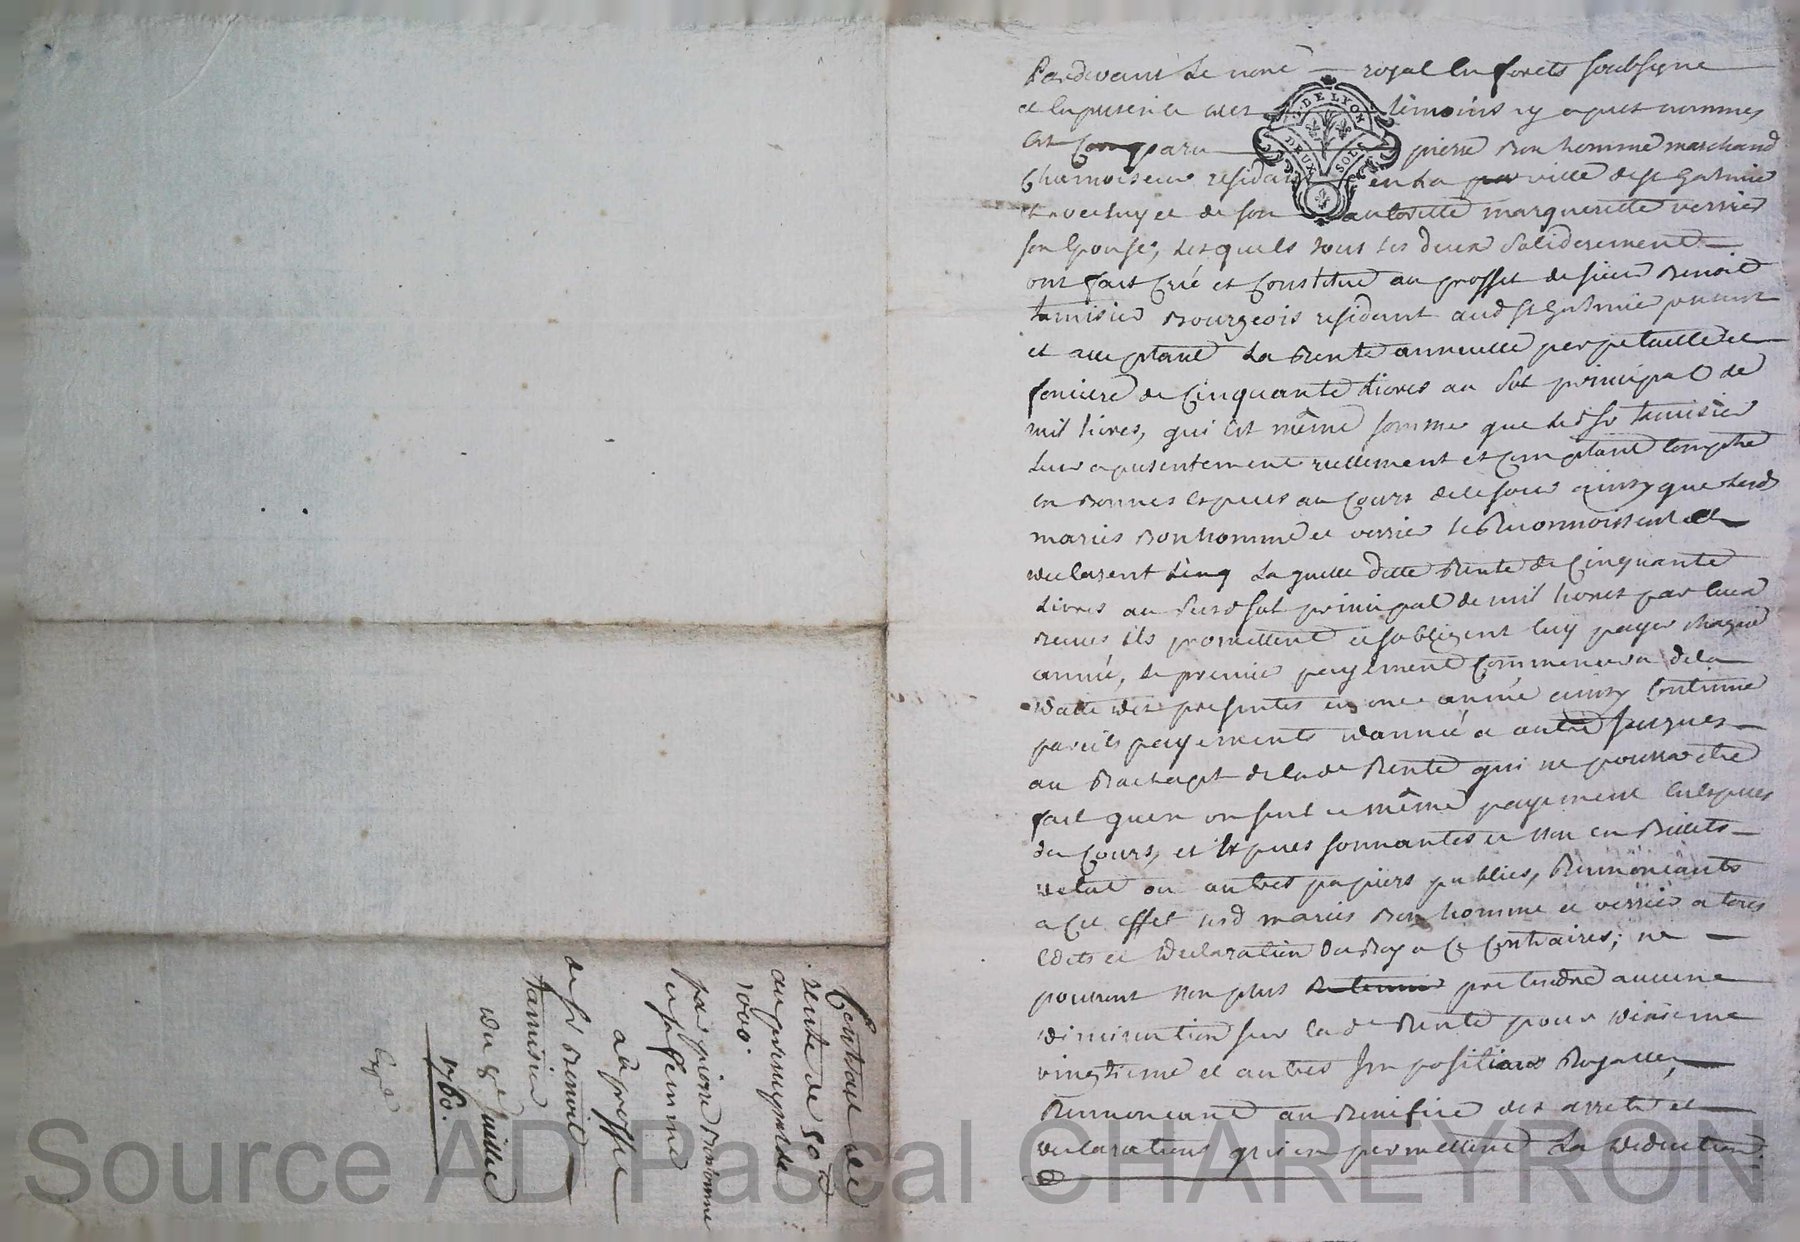 Pardevant Le nore royal En forets soubsigné
et En presence des témoins cy apres nommes
Est Comparu pierre Bonhomme marchand
Chamoiseur residant en La ville de st Galmier
Lequel de luy et de son authorité margueritte verrier
son Epouse, Lesquels tous Les deux solidairement
ont fait Créé et Constitué au proffit de sieur Benoit
tamisier Bourgeois residant aud st Galmier présent
et acceptant La Rente annuelle perpetuelle et
fonciere de Cinquante Livres au sol principal de
mil livres, qui Est même somme que Led sr tamisier
Leur a presentement reellement et Comptant Compté
en Bonnes Especes au Cours de ce jour ainsy que Lesd
mariés Bonhomme et verrier Le Reconnoissent et
declarent Laquelle ditte Rente de Cinquante
Livres au susd sol principal de mil livres par Eux
receus ils promettent et sobligent luy payer chaque
année, Le premier payement Commencera de la
datte des presentes en une année ainsy Continué
pareils payements dannée a autre jusques
au Rachapt de lade Rente qui ne pourra etre
fait quen un seul et même payement En Especes
de Cours, et Especes sonnantes et non en Billets
detat ou autres papiers publics, Renonceants
a Cet effet lesd mariés Bonhomme et verrier a tous
Edits et Declaration Du Roy a Ce Contraires; ne
pouvant non plus pretendre aucune
diminution sur lade Rente pour dixieme
vingtieme et autres Impositions Royalles,
Renonceant au Benefice des arrets et
declarations qui en permettent La deduction.
G. DE LYON
DEUX SOLS
Contrat de
rente de 50 #
au principal de
1000.
par pierre Bonhomme
et sa femme
au proffit
de sr Benoit
tamisier
du 9e Juillet
1760.
Expé
Source AD Pascal CHAREYRON